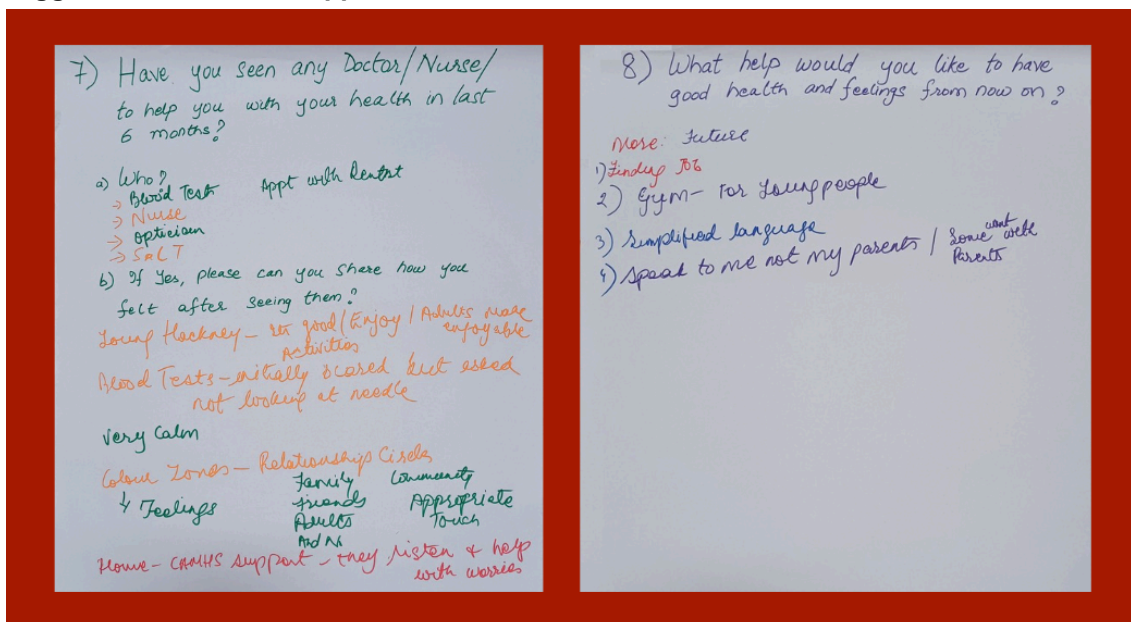 7) Have you seen any Doctor/Nurse/
to help you with your health in last
6 months?
a) Who?
→ Blood Test Appt with Dentist
→ Nurse
→ Optician
→ SaLT
b) If Yes, please can you share how you
felt after seeing them?
Young Hackney - good/Enjoy/Adults make
Activities enjoyable
Blood Tests - initially scared but
not looking at needle
Very Calm
Colour Zones - Relationship Circles
↳ Feelings Family Community
Friends Appropriate
Adults Touch
Home - CAMHS support - they listen & help
with worries
8) What help would you like to have
good health and feelings from now on?
More: Future
1) Finding Job
2) Gym - For Young people
3) Simplified language
4) Speak to me not my parents / Some want with
Parents